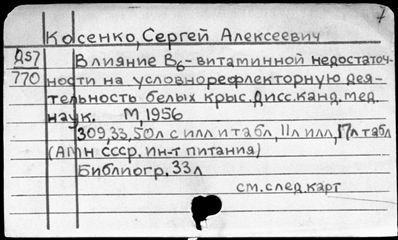 7
Косенко, Сергей Алексеевич
Д57
770
Влияние В6-витаминной недостаточ-
ности на условнорефлекторную дея-
тельность белых крыс. Дисс. канд. мед.
наук. М, 1956
309, 33, 50л с илл и табл, 11л илл, 17л табл
(АМН СССР. Ин-т питания)
Библиогр. 33л
см. след. карт